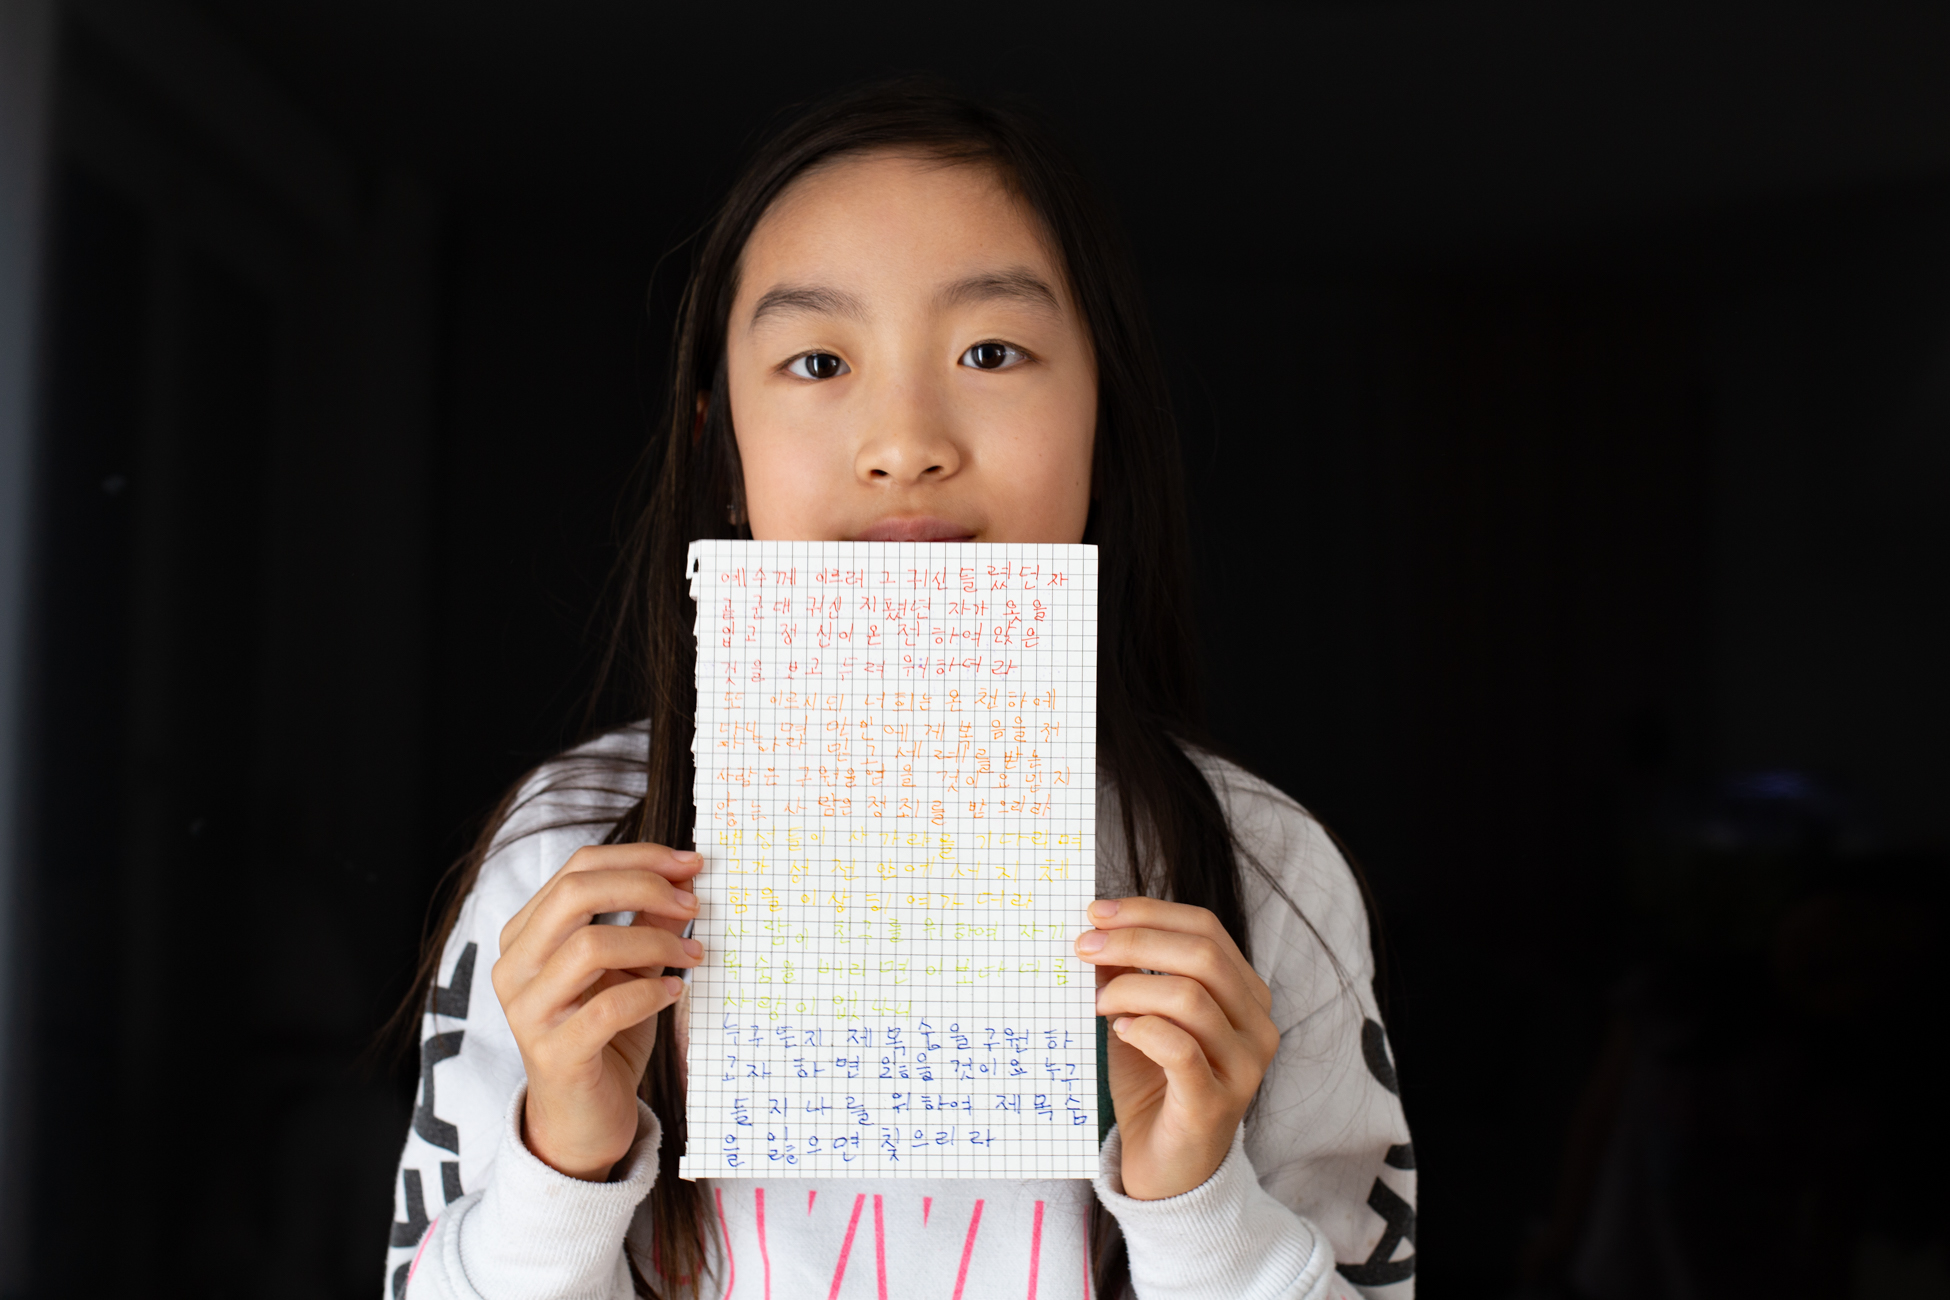 예수께 이르러 그 귀신 들렸던 자
곧 군대 귀신 지폈던 자가 옷을
입고 정 신이 온 전 하여 앉 은
것을 보고 두려 워하더라
또 이르시되 너희는 온 천 하에
다니 며 만 민 에 게 복 음을 전
파 하라 믿 고 세 례를 받 는
사람 은 구원을 얻 을 것이 요 믿 지
않 는 사 람은 정 죄를 받 으리라
백 성 들이 사 가랴를 기다리며
그가 성 전 안에 서 지 체
함 을 이 상 히 여 가 더라
사 람이 친구 를 위 하여 자기
목 숨을 버리 면 이 보 에 더 큼
사랑 이 없 나니
누구 든지 제 목 숨 을 구원 하
고자 하 면 잃을 것이 요 누구
들 지 나 를 위 하여 제 목 숨
을 잃 으 면 찾 으리 라